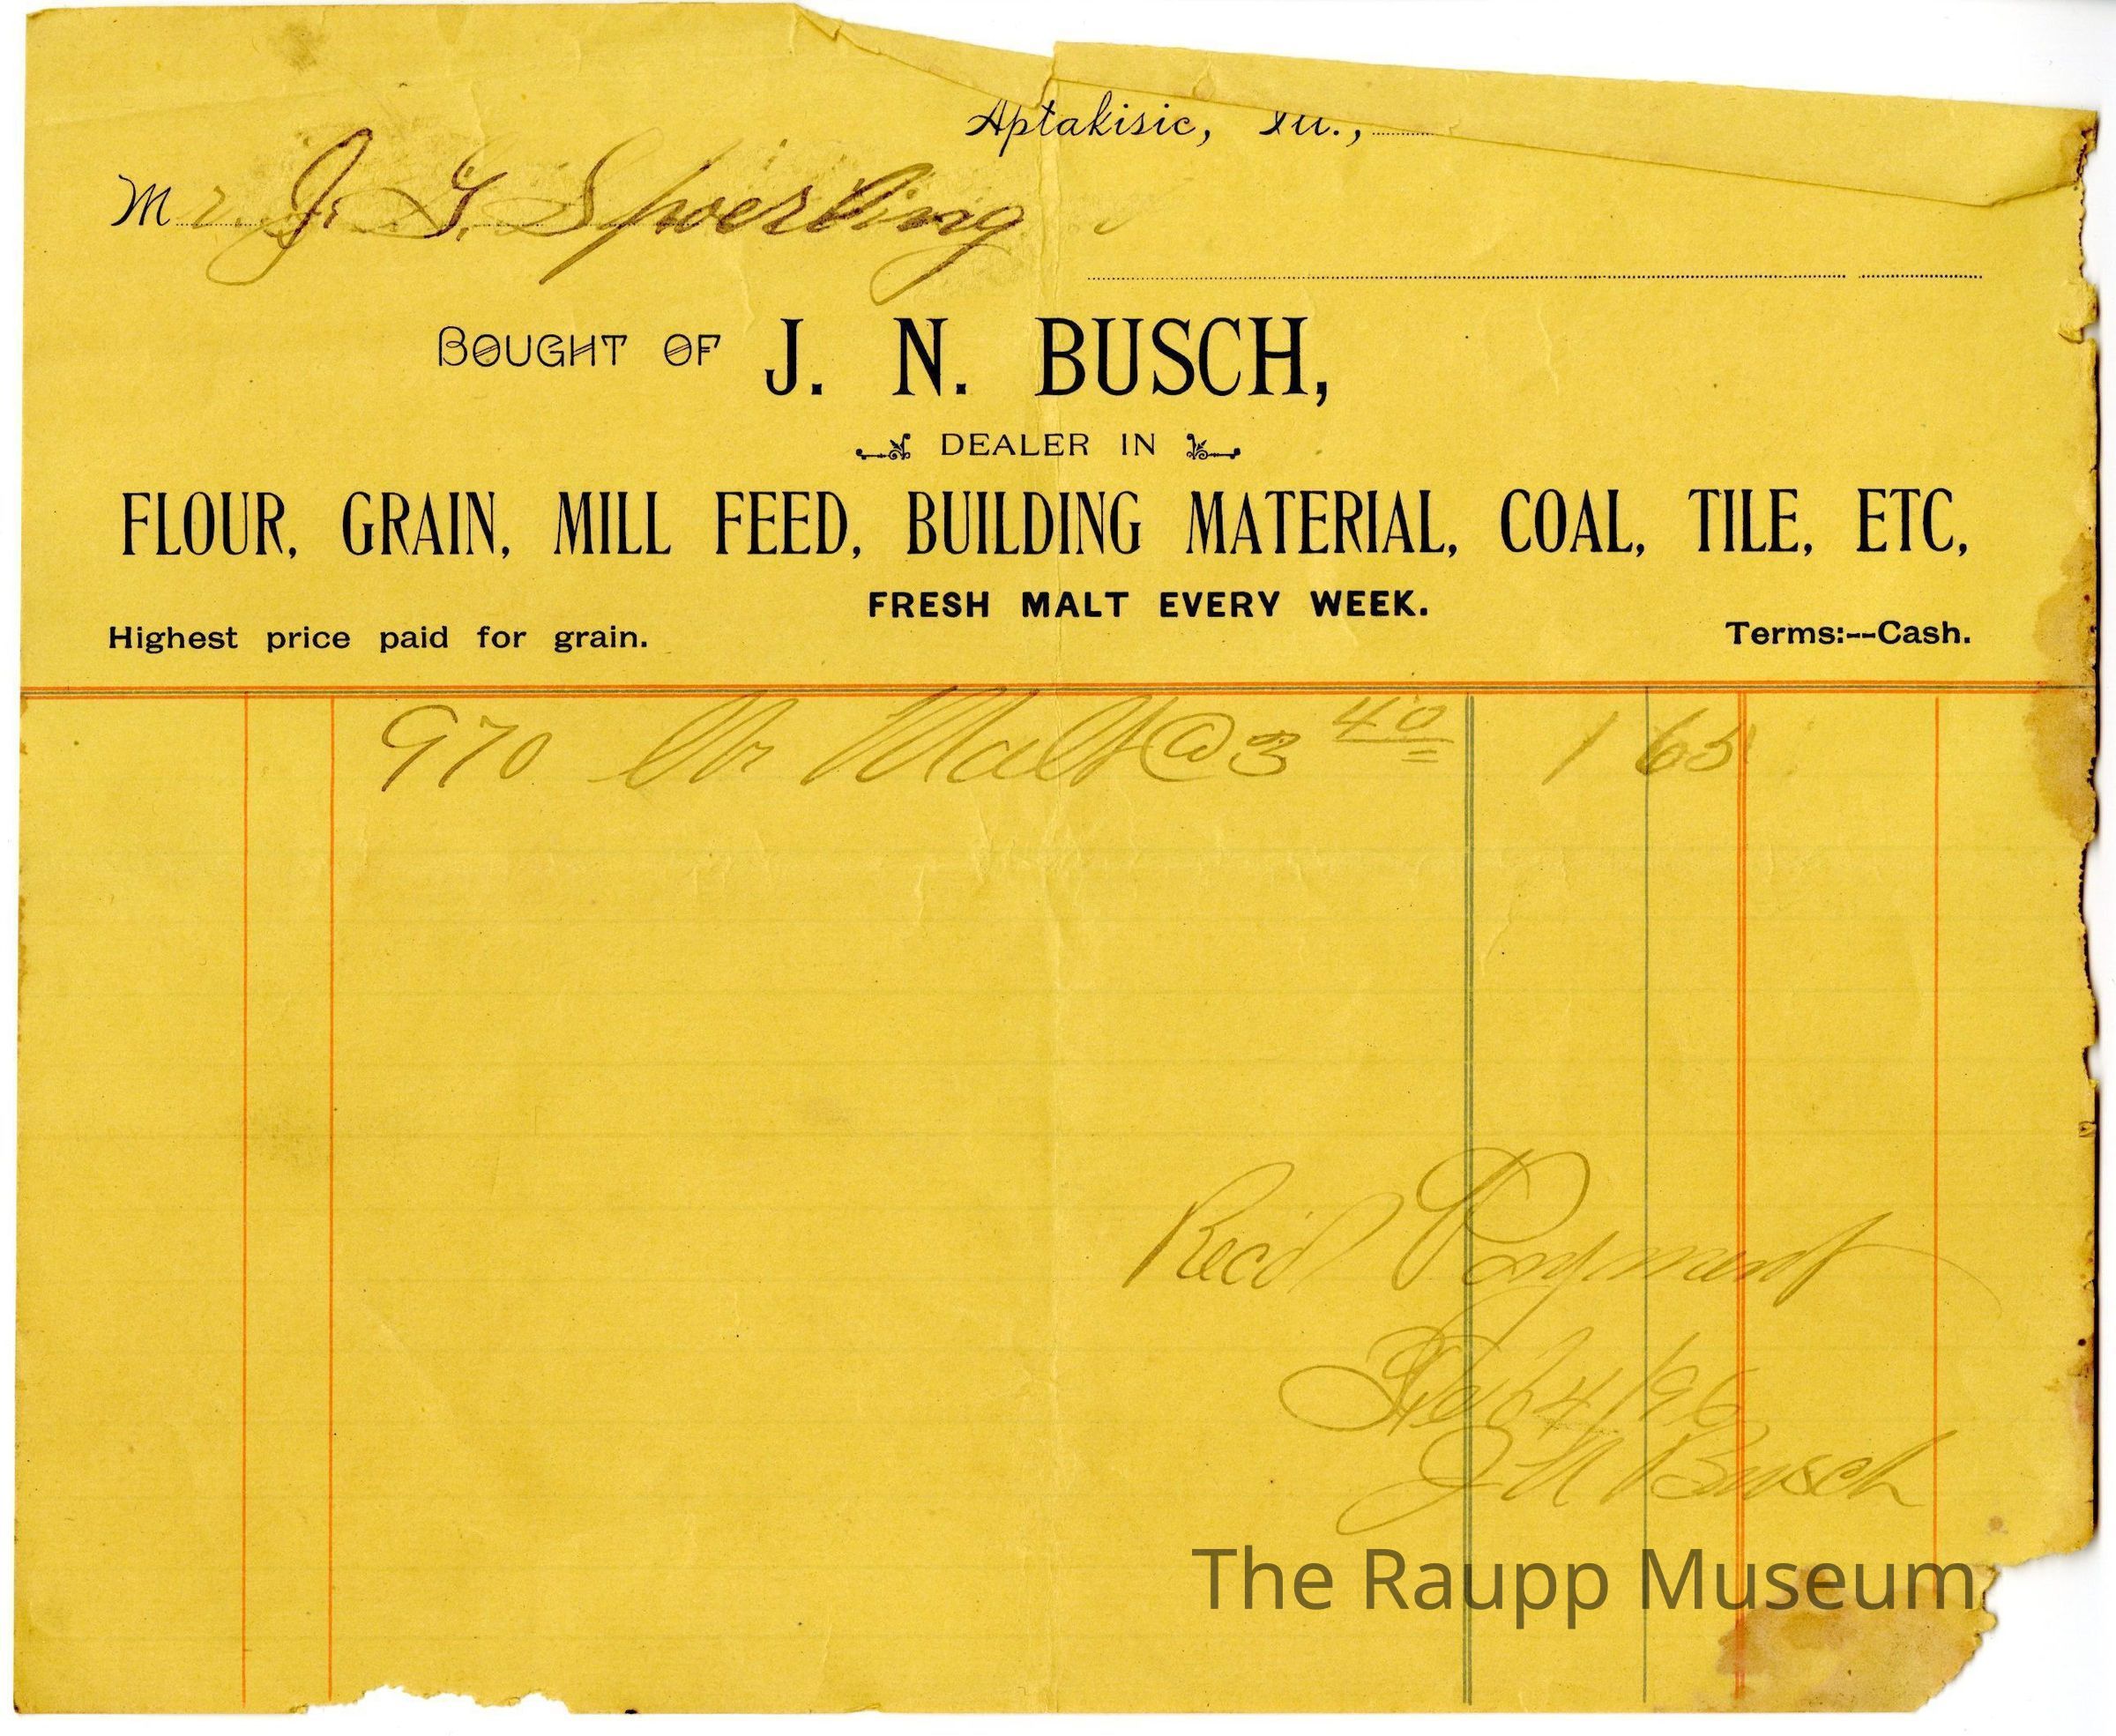 Aptakisic, Ill.,
Mr. J. G. Spoerling
BOUGHT OF J. N. BUSCH,
DEALER IN
FLOUR, GRAIN, MILL FEED, BUILDING MATERIAL, COAL, TILE, ETC,
FRESH MALT EVERY WEEK.
Highest price paid for grain. Terms:--Cash.
970 lbs Malt @ 3 40 1 65
Rec'd Payment
Feb 4/96
J N Busch
The Raupp Museum